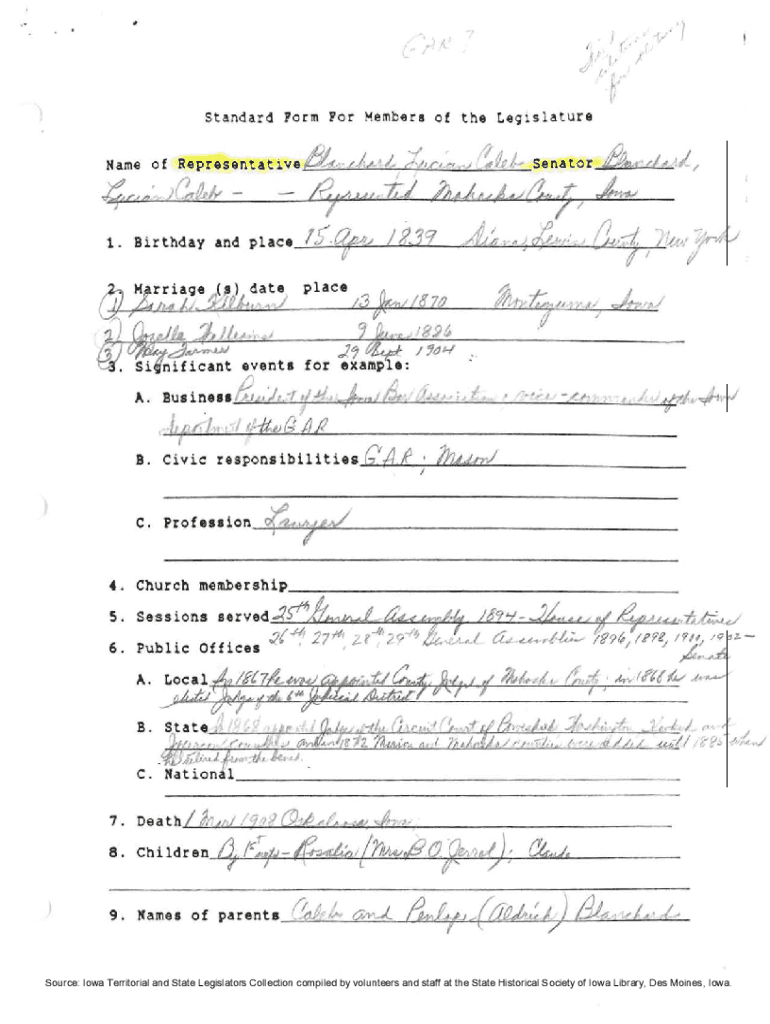 GAR?
for
Standard Form For Members of the Legislature
Name of Representative Blanchard, Lucian Caleb Senator Blanchard,
Lucian Caleb - - Represented Mahaska County, Iowa
1. Birthday and place 15 Apr 1839 Diana, Lewis County, New York
2. Marriage (s) date place
(1) Sarah Kilburn 13 Jan 1870 Montezuma, Iowa
(2) Williams 9 June 1886
(3) May Farmer 29 Sept 1904
3. Significant events for example:
A. Business President of the Iowa Bar Association; vice-commander of the Iowa
department of the G.A.R
B. Civic responsibilities G.A.R; Mason
C. Profession Lawyer
4. Church membership
5. Sessions served 25th General Assembly 1894 - House of Representatives
26th, 27th, 28th, 29th General Assemblies 1896, 1898, 1900, 1902 -
6. Public Offices
Senate
A. Local In 1867 he was appointed County Judge of Mahaska County; in 1868 he was
elected Judge of the 6th Judicial District
B. State In 1968 Judge of the Circuit Court of Poweshiek, Washington, Keokuk and
counties and in 1872 Marion and Mahaska counties were added until 1885 when
he retired from the bench.
C. National
7. Death 1 Mar 1908 Oskaloosa, Iowa
8. Children By 1st - Rosalia (Mrs B.O. Jerrel); Claude
9. Names of parents Caleb and (Aldrich) Blanchard
Source: Iowa Territorial and State Legislators Collection compiled by volunteers and staff at the State Historical Society of Iowa Library, Des Moines, Iowa.